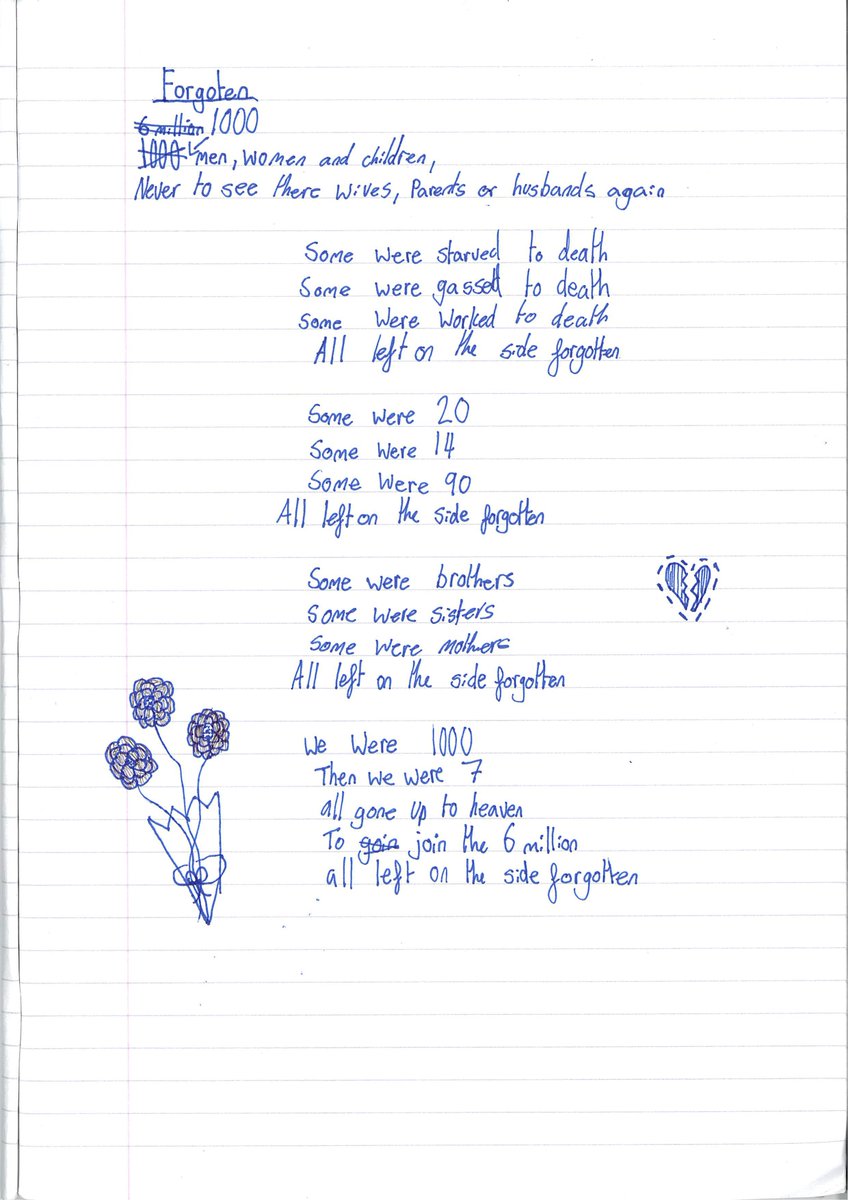 Forgoten
6 million 1000
1000 men, women and children,
Never to see there wives, Parents or husbands again
Some were starved to death
Some were gassed to death
Some were worked to death
All left on the side forgotten
Some were 20
Some were 14
Some were 90
All left on the side forgotten
Some were brothers
Some were sisters
Some were mothers
All left on the side forgotten
We were 1000
Then we were 7
all gone up to heaven
To goin join the 6 million
all left on the side forgotten